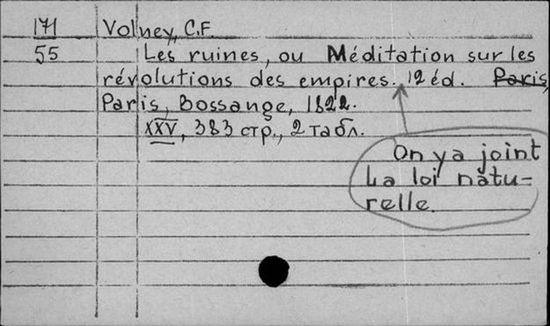 171 Volney, C.F.
55 Les ruines, ou Méditation sur les
révolutions des empires. 12 éd. Paris,
Paris, Bossange, 1822.
XXV, 383 стр., 2 табл.
On y a joint
La loi natu-
relle.